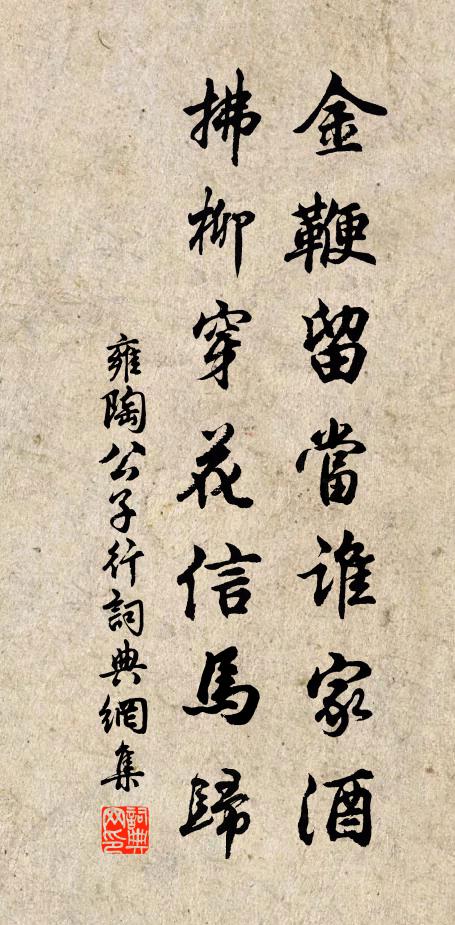 金鞭留當誰家酒
拂柳穿花信馬歸
雍陶公子行詞典網集
詞典網印